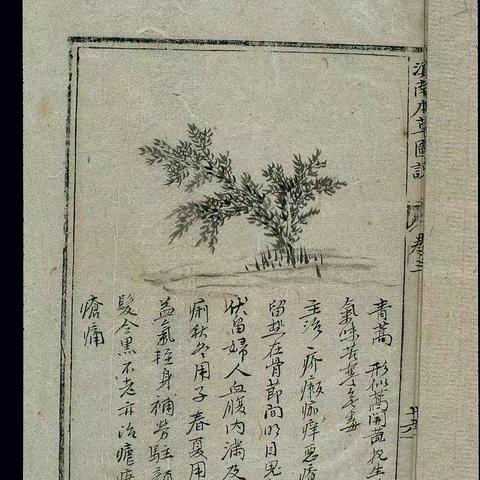 青蒿 形似蒿開黄花生
氣味苦寒無毒
主治 疥瘙痂痒惡瘡
留熱在骨節間明目鬼
伏留婦人血腹内满及
痢秋冬用子春夏用
益氣軽身補劳駐顔
髮令黒不老亦治瘧疾
瘡痛
滇南本草圖說
卷三